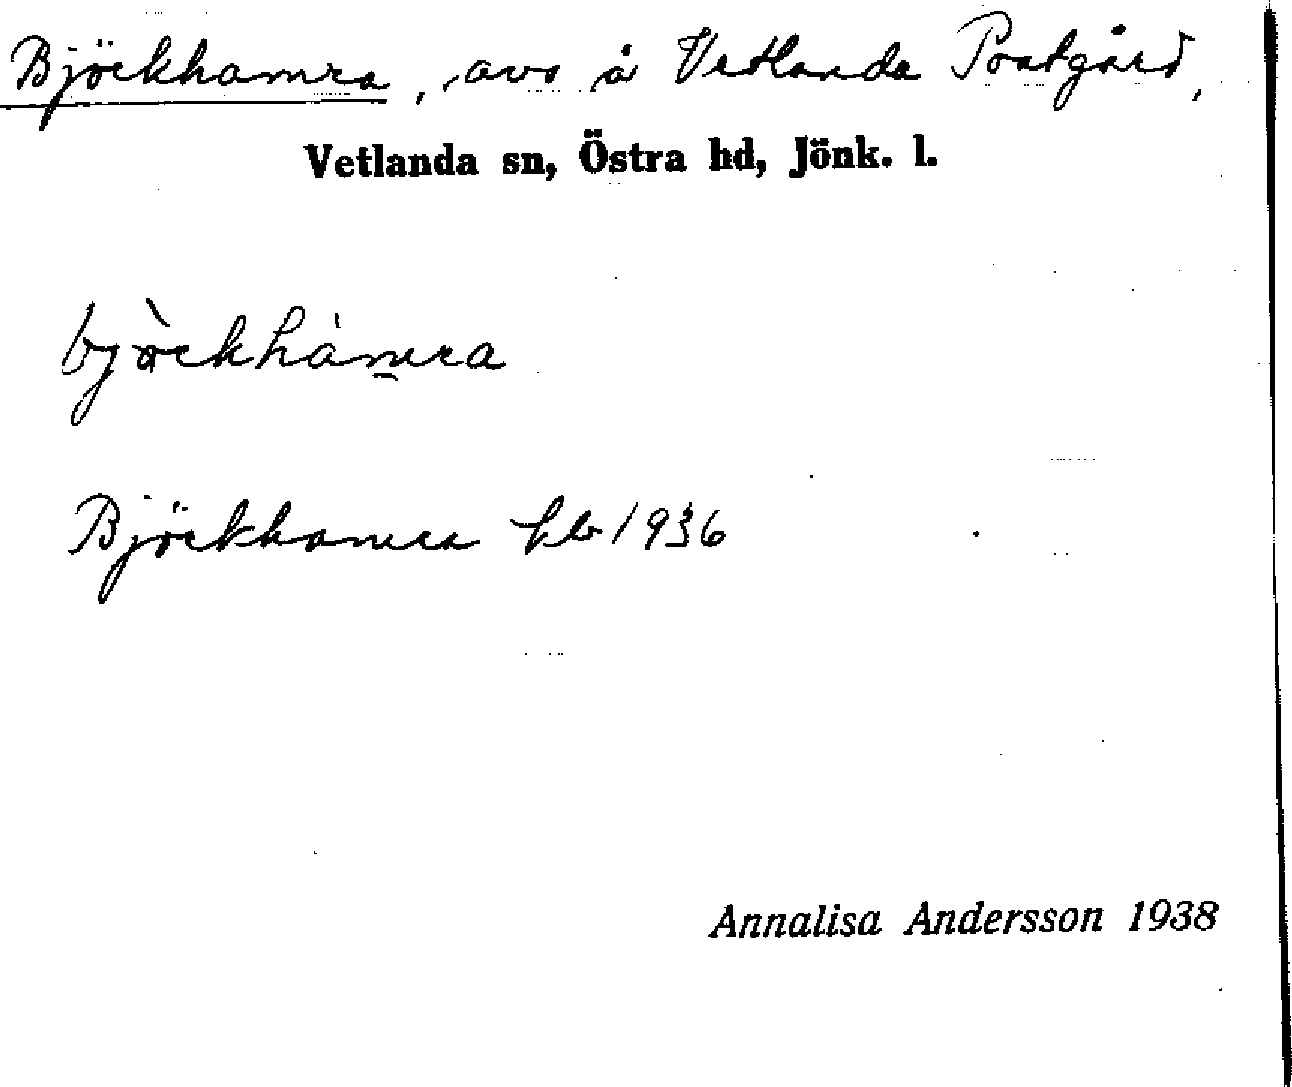 Björkhamra, avs å Vetlanda Postgård,
Vetlanda sn, Östra hd, Jönk. l.
bjö̀rkhàmra
Björkhamra hb 1936
Annalisa Andersson 1938